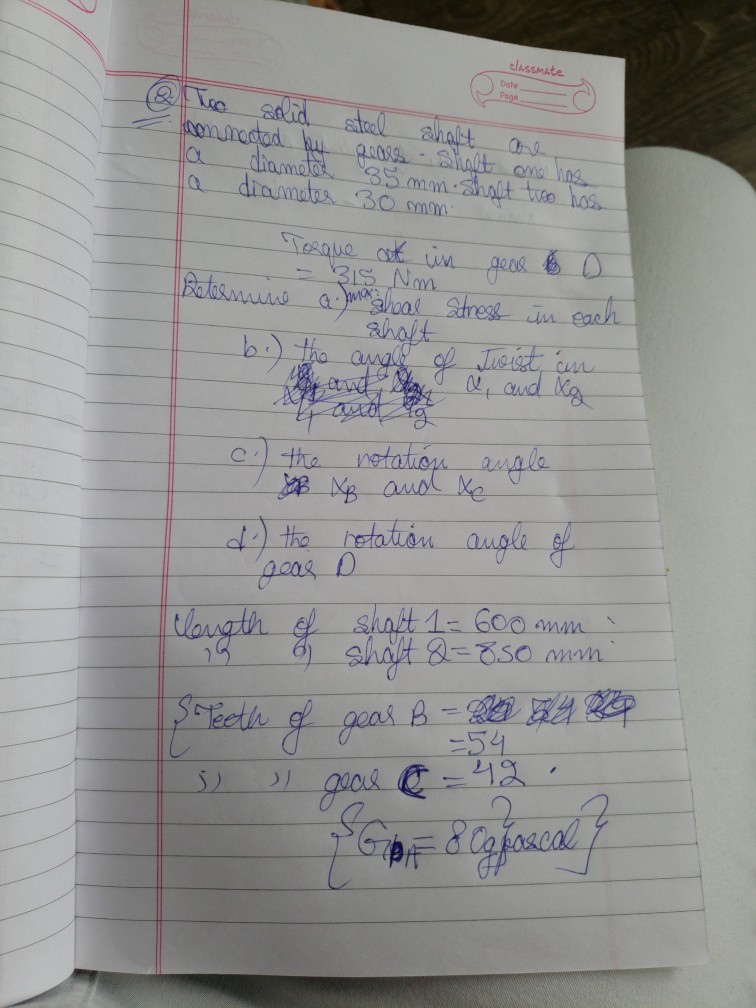 classmate
Date
Page
Q Two solid steel shaft are
connected by gears. Shaft one has
a diameter 35 mm. Shaft two has
a diameter 30 mm.
Torque in gear D
= 315 Nm
Determine a.) max. shear stress in each
shaft
b.) the angle of Twist in
α, and α2
c.) the rotation angle
αB and αC
d.) the rotation angle of
gear D
length of shaft 1 = 600 mm
" " shaft 2 = 850 mm
{Teeth of gear B =
= 54
" " gear C = 42 .
{ G = 80 gpascal }